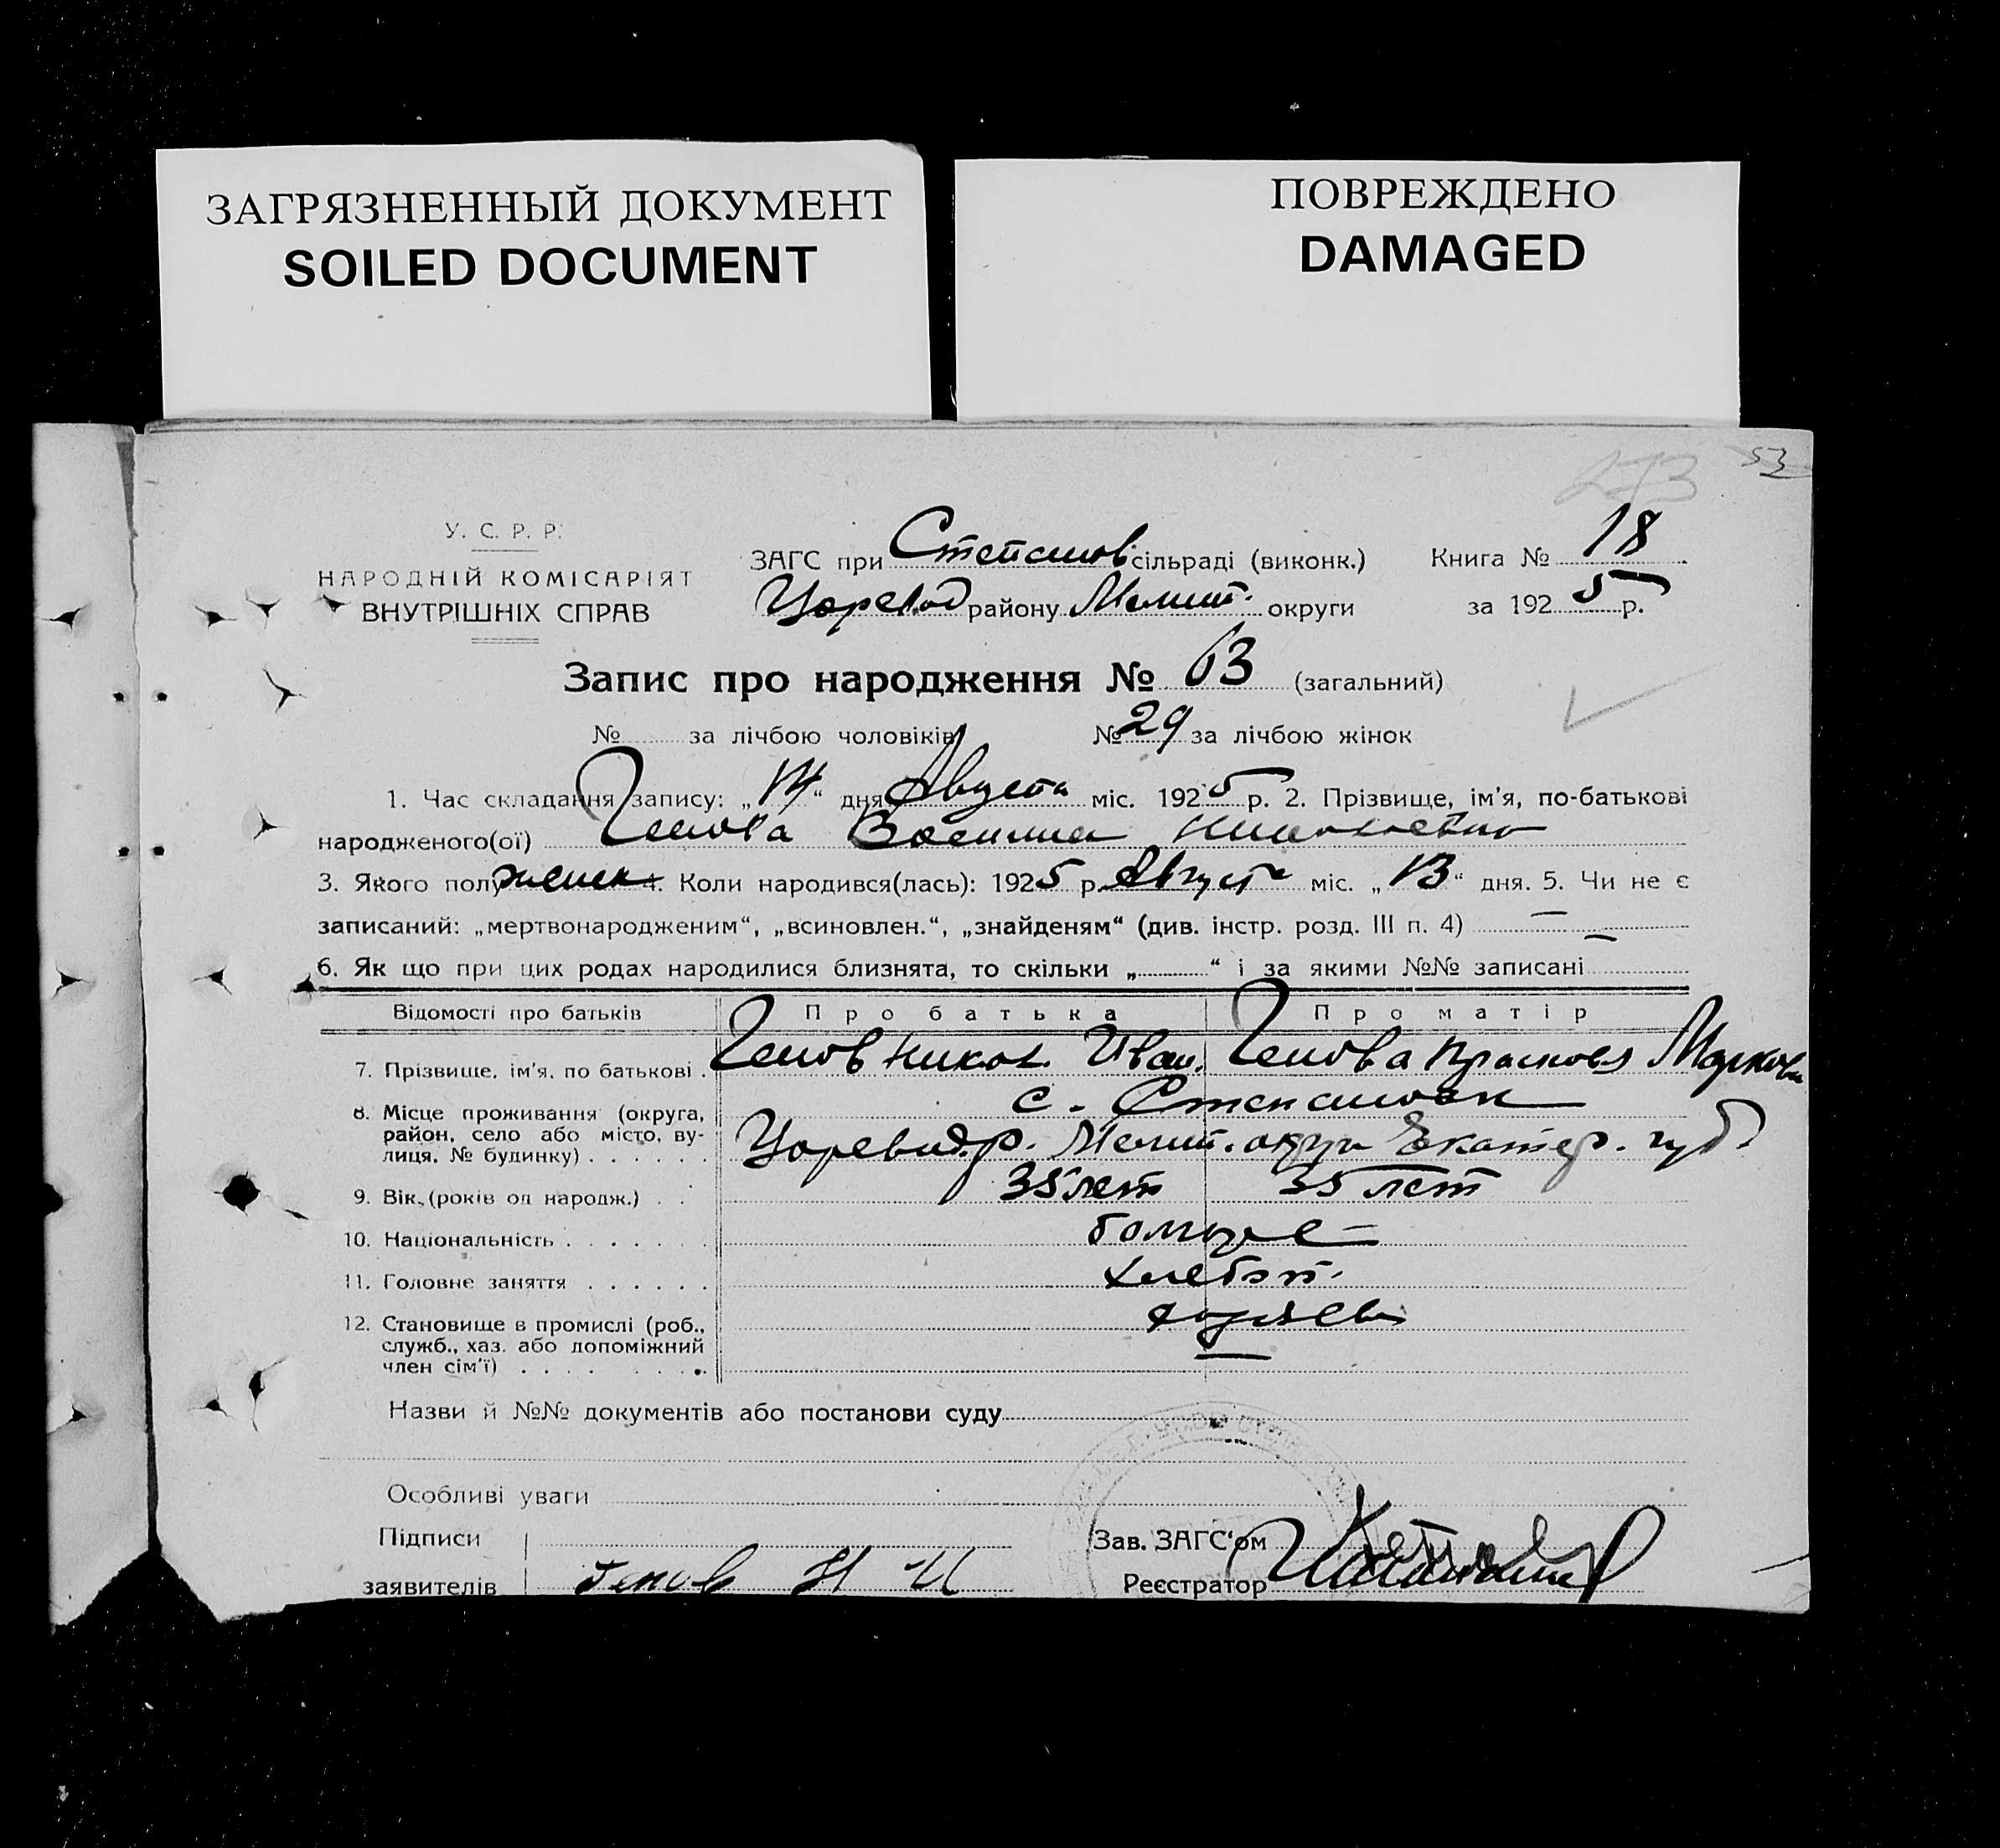 ЗАГРЯЗНЕННЫЙ ДОКУМЕНТ
SOILED DOCUMENT
ПОВРЕЖДЕНО
DAMAGED
273 53
У. С. Р. Р.
НАРОДНІЙ КОМІСАРІЯТ
ВНУТРІШНІХ СПРАВ
ЗАГС при Степанов сільраді (виконк.) Книга № 18
Царевод району Мелит. округи за 1925 р.
Запис про народження № 63 (загальний)
№ за лічбою чоловіків № 29 за лічбою жінок
1. Час складання запису: „14“ дня Августа міс. 1925 р. 2. Прізвище, ім'я, по-батькові
народженого(ої) Генова Василиса Николаевна
3. Якого полу женск 4. Коли народився(лась): 1925 р. Август міс. „13“ дня. 5. Чи не є
записаний: „мертвонародженим“, „всиновлен.“, „знайденям“ (див. інстр. розд. III п. 4) —
6. Як що при цих родах народилися близнята, то скільки „ “ і за якими №№ записані —
Відомості про батьків Про батька Про матір
7. Прізвище, ім'я, по батькові . Генов Никол. Иван. Генова Прасковья Маркова
8. Місце проживання (округа, с. Степановка
район, село або місто, ву-
лиця, № будинку) . . . . . . Царевод.р. Мелит. округи Екатер. губ.
9. Вік, (років од народж.) . . 35 лет 35 лет
10. Національність . . . . . . болгаре
11. Головне заняття . . . . . . хлебоп.
12. Становище в промислі (роб., хозяева
служб., хаз. або допоміжний
член сім'ї) . . . . . . . .
Назви й №№ документів або постанови суду
Особливі уваги
Підписи Зав. ЗАГС'ом
заявителів Генов Н И Реєстратор